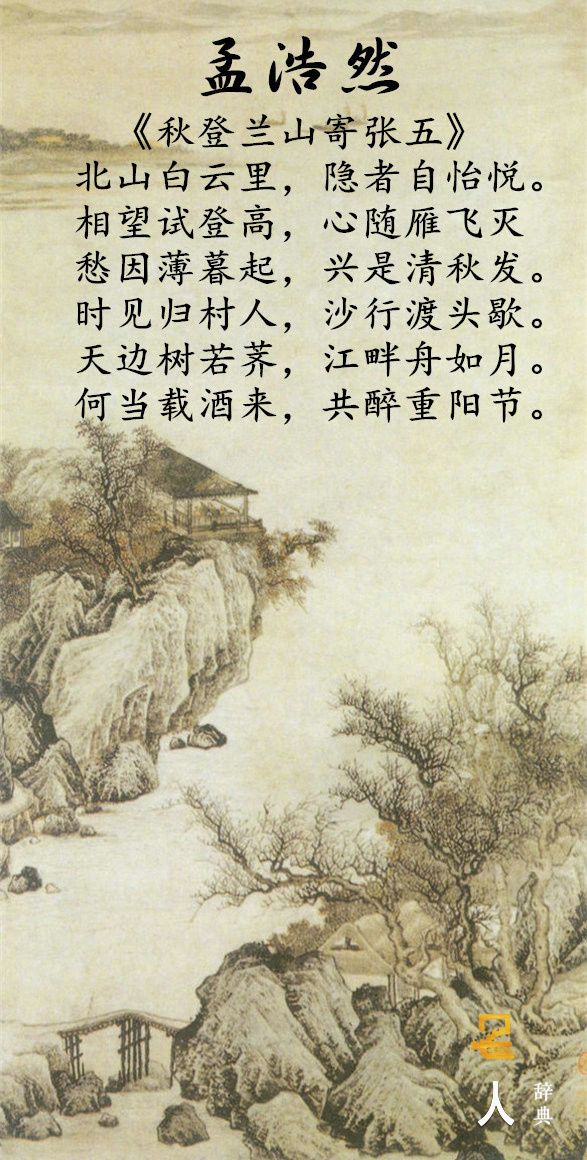 孟浩然
《秋登兰山寄张五》
北山白云里，隐者自怡悦。
相望试登高，心随雁飞灭
愁因薄暮起，兴是清秋发。
时见归村人，沙行渡头歇。
天边树若荠，江畔舟如月。
何当载酒来，共醉重阳节。
名人
辞典